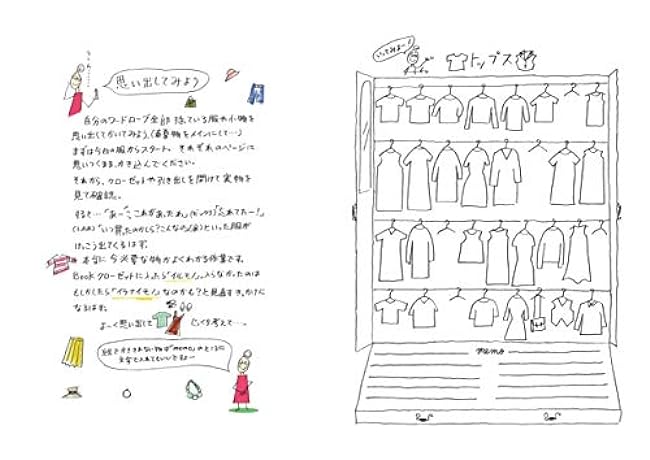 う〜ん……
思い出してみよう
自分のワードローブ全部、持っている服や小物を
思い出してかいてみよう。(消耗物をメインにして…)
まずは今の服からスタート。それぞれのページに
思いつくまま、かき込んでください。
それから、クローゼットや引き出しを開けて実物を
見て確認。
すると…「あーこれがあったわ」「忘れてたー!」
「いつ買ったのかしら?こんなの」といった服が
けっこう出てくるはず。
本当に今必要な物がよくわかる作業です。
Bookクローゼットに入ったら「イルモノ」、入らなかったのは
もしかしたら「イラナイモノ」なのかも?と見直すきっかけに
なります。
よーく思い出して
じっくり考えて…
絵でかききれない物は「memo」のところに
文字で入れてもいいですよー
いってみよー!
トップス
memo